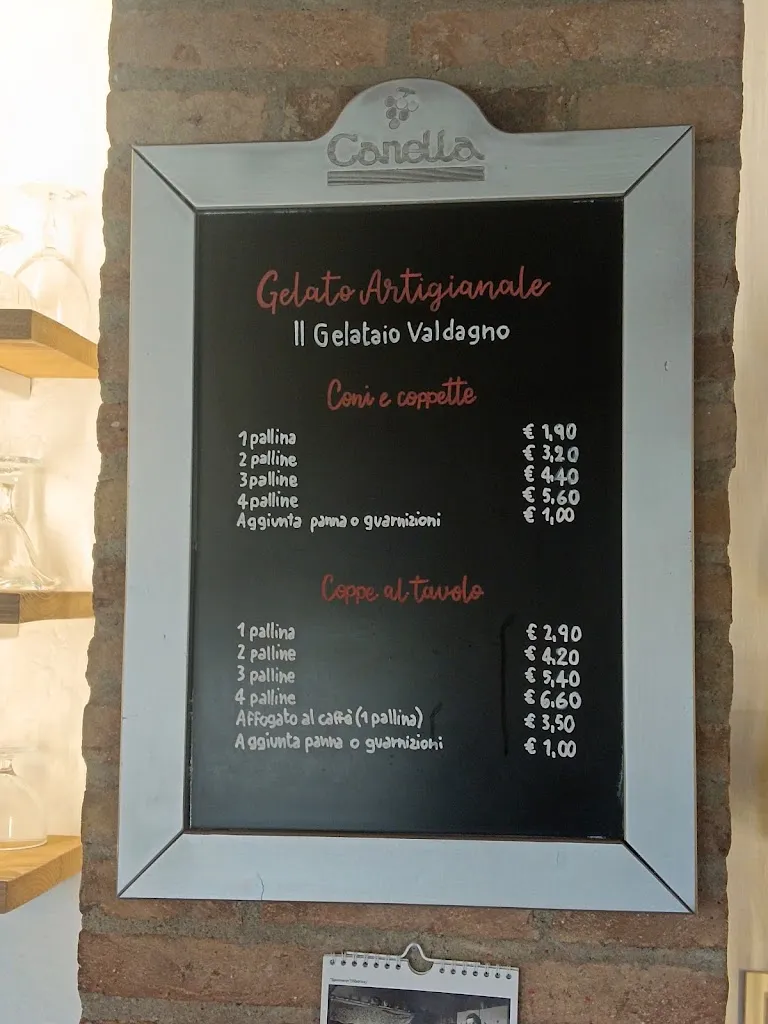 Canella
Gelato Artigianale
Il Gelataio Valdagno
Coni e coppette
1 pallina € 1,90
2 palline € 3,20
3 palline € 4.40
4 palline € 5,60
Aggiunta panna o guarnizioni € 1,00
Coppe al tavolo
1 pallina € 2,90
2 palline € 4.20
3 palline € 5,40
4 palline € 6.60
Affogato al caffè (1 pallina) € 3,50
Aggiunta panna o guarnizioni € 1,00